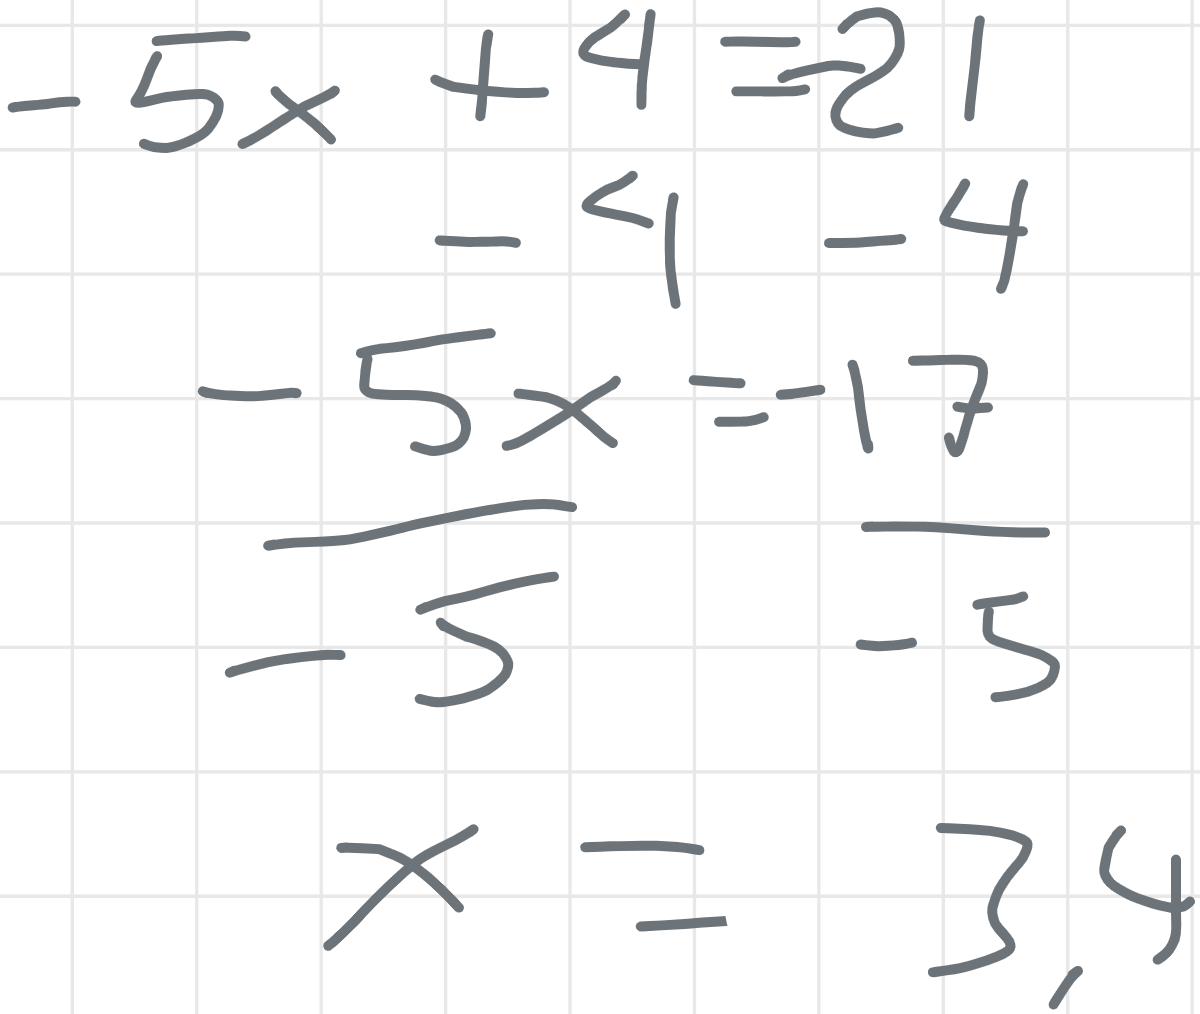 -5x + 4 = -21
- 4 - 4
-5x = -17
- 5 - 5
x = 3,4